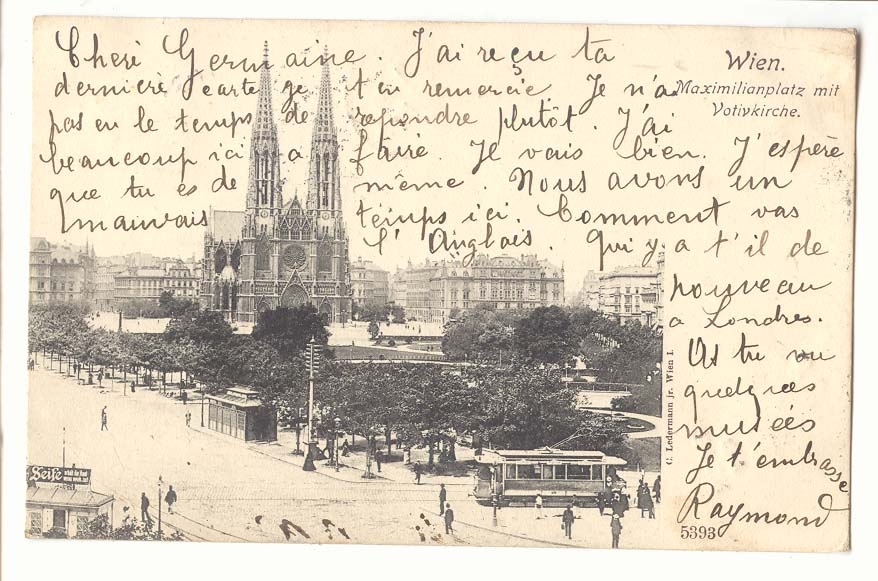 Cheré Germaine. J'ai reçu ta
dernière carte je t'en remercie. Je n'a
pas eu le temps de repondre plutôt. J'ai
beaucoup ici a faire. Je vais bien. J'espère
que tu es de même. Nous avons un
mauvais temps ici. Comment vas
l'Anglais. Qui y a t'il de
nouveau
a Londres.
As tu vu
quelques
musées
Je t'embrasse
Raymond
Wien.
Maximilianplatz mit
Votivkirche.
C. Ledermann jr. Wien I.
5393
Seife